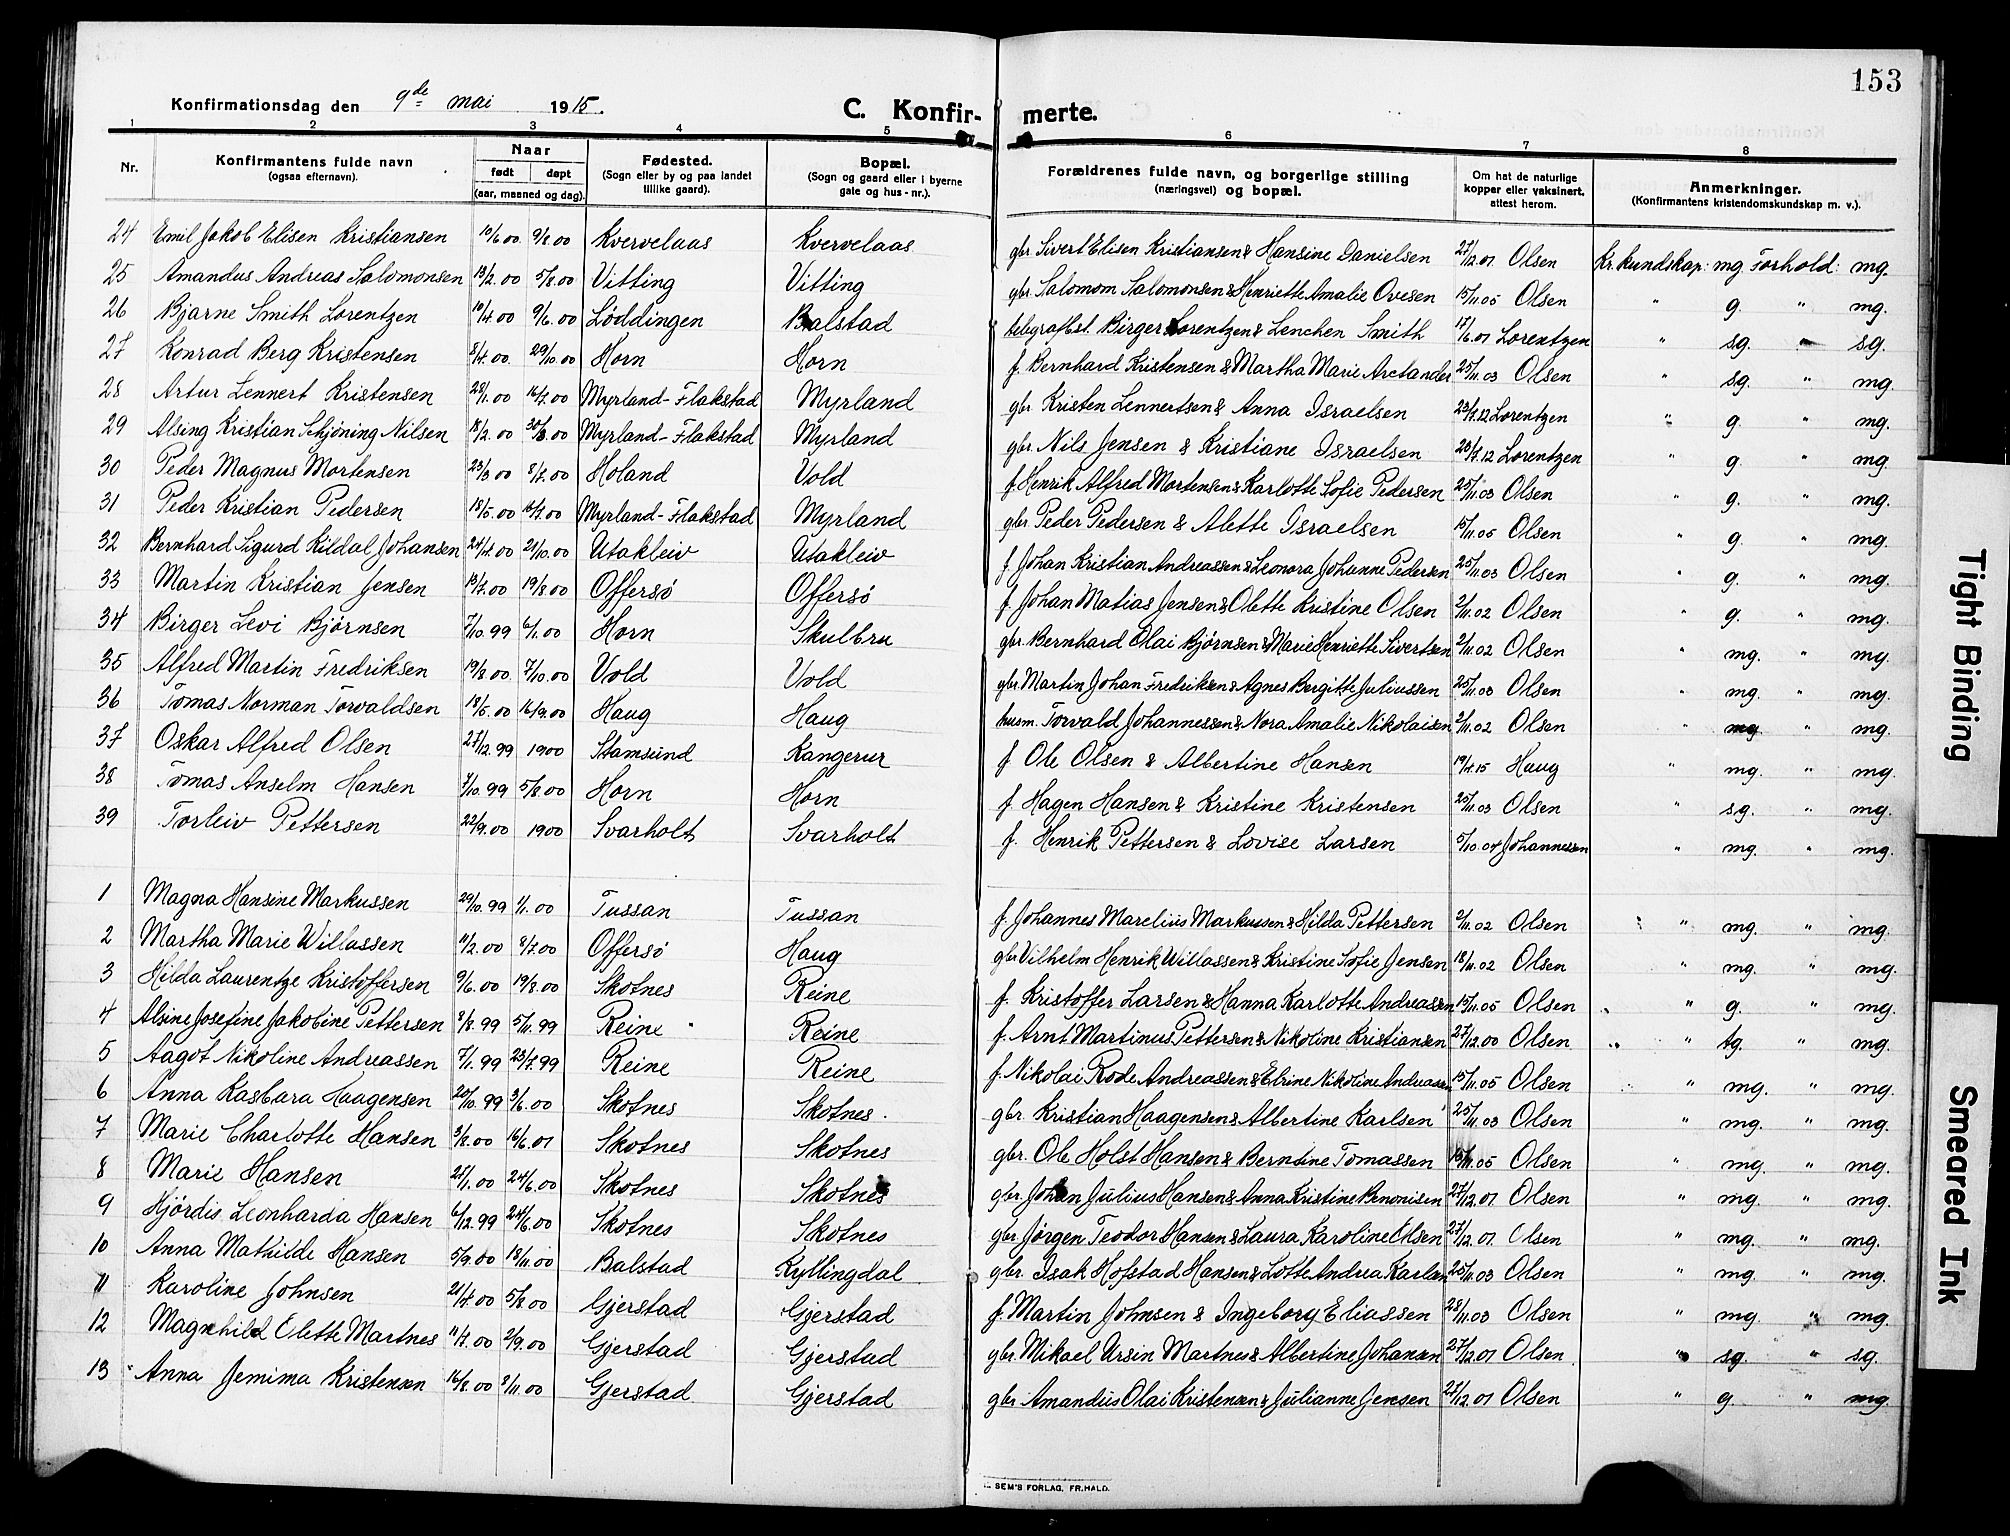 153
Konfirmationsdag den 9de mai 1915.
C. Konfir- merte.
1 2 3 4 5 6 7 8
Nr. Konfirmantens fulde navn (ogsaa efternavn). Naar født døpt (aar, maaned og dag). Fødested. (Sogn eller by og paa landet tillike gaard). Bopæl. (Sogn og gaard eller i byerne gate og hus-nr.). Forældrenes fulde navn, og borgerlige stilling (næringsvei) og bopæl. Om hat de naturlige kopper eller vaksinert, attest herom. Anmerkninger. (Konfirmantens kristendomskundskap m. v.).
24 Emil Jakob Elisen Kristiansen 10/6.00 9/8.00 Kvervelaas Kvervelaas gbr Sivert Elisen Kristiansen & Hansine Danielsen 27/12.01 Olsen Kr. kundskap: mg. Forhold: mg.
25 Amandus Andreas Salomonsen 13/2.00 5/8.00 Vitting Vitting gbr. Salomom Salomonsen & Henriette Amalie Ovesen 15/11.05 Olsen " g. " mg.
26 Bjarne Smith Lorentzen 10/4.00 9/6.00 Løddingen Balstad telegrafbst. Birger Lorentzen & Lenchen Smith 17/6.01 Lorentzen " sg. " sg.
27 Konrad Berg Kristensen 8/4.00 29/10.00 Horn Horn f. Bernhard Kristensen & Martha Marie Arctander 25/11.03 Olsen " sg. " mg.
28 Artur Lennert Kristensen 28/1.00 16/7.00 Myrland-Flakstad Myrland gbr Kristen Lennertsen & Anna Israelsen 23/7.12 Lorentzen " g. " mg.
29 Alsing Kristian Schjøning Nilsen 18/2.00 30/8.00 Myrland-Flakstad Myrland gbr. Nils Jensen & Kristiane Israelsen 23/7.12 Lorentzen " g. " mg.
30 Peder Magnus Mortensen 23/3.00 8/7.00 Holand Vold f. Henrik Alfred Mortensen & Karlotte Sofie Pedersen 25/11.03 Olsen " g. " mg.
31 Peder Kristian Pedersen 18/5.00 16/7.00 Myrland-Flakstad Myrland gbr. Peder Pedersen & Alette Israelsen 15/11.05 Olsen " g. " mg.
32 Bernhard Sigurd Kildal Johansen 24/4.00 21/10.00 Utakleiv Utakleiv f. Johan Kristian Andreassen & Leonora Johanne Pedersen 25/11.03 Olsen " g. " mg.
33 Martin Kristian Jensen 13/7.00 19/8.00 Offersø Offersø f. Johan Matias Jensen & Olette Kristine Olsen 2/11.02 Olsen " g. " mg.
34 Birger Levi Bjørnsen 7/10.99 6/1.00 Horn Skulbru gbr. Bernhard Olai Bjørnsen & Marie Henriette Sivertsen 2/11.02 Olsen " mg. " mg.
35 Alfred Martin Fredriksen 19/8.00 7/10.00 Vold Vold gbr. Martin Johan Fredriksen & Agnes Bergitte Juliussen 25/11.03 Olsen " mg. " mg.
36 Tomas Norman Torvaldsen 18/5.00 16/9.00 Haug Haug husm. Torvald Johannessen & Nora Amalie Nikolaisen 2/11.02 Olsen " mg. " mg.
37 Oskar Alfred Olsen 27/12.99 1900 Stamsund Kangerur f Ole Olsen & Albertine Hansen 19/4.15 Haug " mg. " mg.
38 Tomas Anselm Hansen 7/10.99 5/8.00 Horn Horn f Hagen Hansen & Kristine Kristensen 25/11.03 Olsen " sg. " mg.
39 Torleiv Pettersen 22/9.00 1900 Svarholt Svarholt f. Henrik Pettersen & Lovise Larsen 5/10.04 Johannessen " mg. " mg.
1 Magna Hansine Markussen 29/10.99 1/1.00 Tussan Tussan f. Johannes Marelius Markussen & Hilda Pettersen 2/11.02 Olsen " mg. " mg.
2 Martha Marie Willassen 11/2.00 8/7.00 Offersø Haug gbr Vilhelm Henrik Willassen & Kristine Sofie Jensen 18/11.02 Olsen " mg. " mg.
3 Hilda Laurentze Kristoffersen 9/6.00 19/8.00 Skotnes Reine f. Kristoffer Larsen & Hanna Karlotte Andreassen 15/11.05 Olsen " g. " mg.
4 Alsine Josefine Jakobine Pettersen 8/8.99 5/11.99 Reine Reine f. Arnt Martinus Pettersen & Nikoline Kristiansen 27/12.00 Olsen " tg. " mg.
5 Aagot Nikoline Andreassen 7/1.99 23/7.99 Reine Reine f. Nikolai Rode Andreassen & Elrine Nikoline Andreassen 15/11.05 Olsen " mg. " mg.
6 Anna Kasbara Haagensen 20/10.99 3/6.00 Skotnes Skotnes. gbr. Kristian Haagensen & Albertine Karlsen 25/11.03 Olsen " mg. " mg.
7 Marie Charlotte Hansen 3/8.00 16/6.01 Skotnes Skotnes gbr. Ole Holst Hansen & Berntine Tomassen 15/11.05 Olsen " mg. " mg.
8 Marie Hansen 21/1.00 24/6.00 Skotnes Skotnes gbr. Johan Julius Hansen & Anna Kristine Benonisen 27/12.01 Olsen " mg. " mg.
9 Hjørdis Leonharda Hansen 6/12.99 24/6.00 Skotnes Skotnes gbr. Jørgen Teodor Hansen & Laura Karoline Olsen 27/12.01. Olsen " mg. " mg.
10 Anna Mathilde Hansen 5/9.00 18/11.00 Balstad Kyllingdal gbr. Isak Hofstad Hansen & Lotte Andrea Karlsen 25/11.03 Olsen " mg. " mg.
11 Karoline Johnsen 21/4.00 5/8.00 Gjerstad Gjerstad f. Martin Johnsen & Ingeborg Eliassen 28/11.03 Olsen " mg. " mg.
12 Magnhild Olette Martnes 11/7.00 2/9.00 Gjerstad Gjerstad gbr. Mikael Ursin Martnes & Albertine Johansen 27/12.01 Olsen " sg. " sg.
13 Anna Jemima Kristensen 16/8.00 8/11.00 Gjerstad Gjerstad gbr Amandus Olai Kristensen & Julianne Jensen 27/12.01 Olsen " g. " mg.
SEM'S FORLAG, FR.HALD.
Tight Binding
Smeared Ink